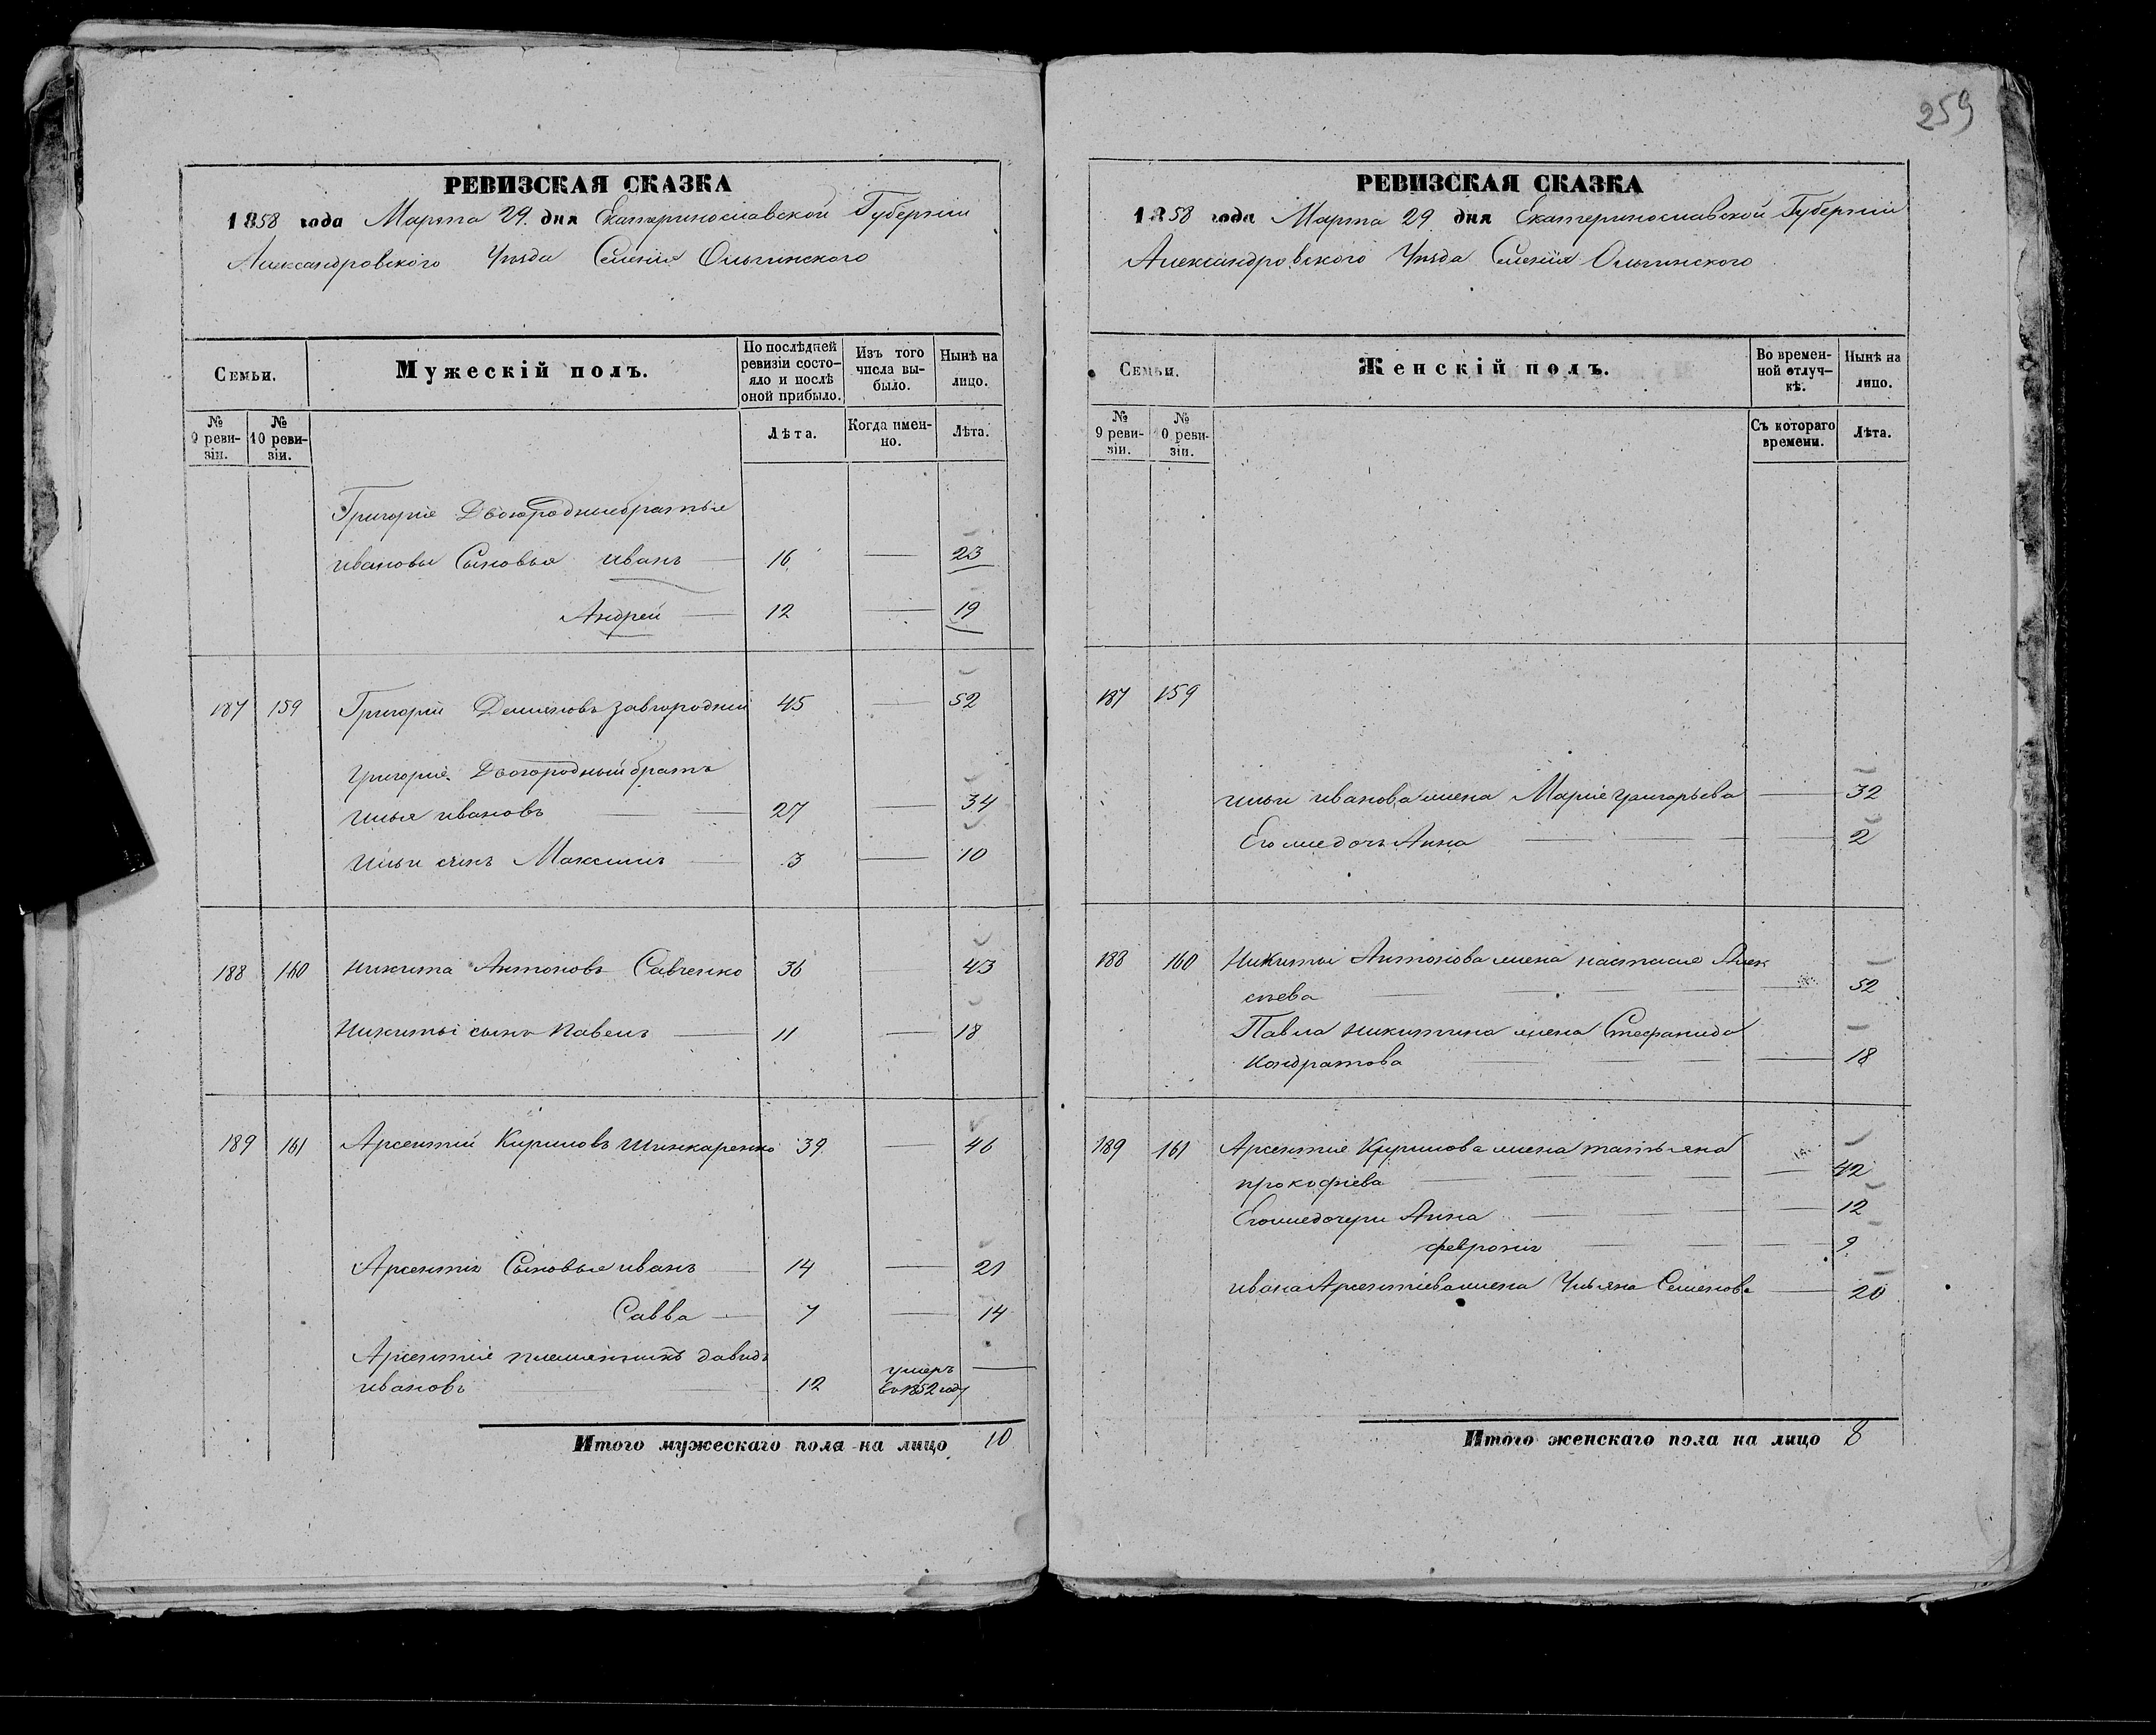 259
РЕВИЗСКАЯ СКАЗКА
1858 года Марта 29. дня Екатеринославской Губерніи
Александровского Уѣзда Селенія Ольгинского
Семьи.
Мужескій полъ.
По послѣдней ревизіи состояло и послѣ оной прибыло.
Изъ того числа выбыло.
Нынѣ на лицо.
№ 9 ревизіи.
№ 10 ревизіи.
Лѣта.
Когда именно.
Лѣта.
Григорія Двоюродныебратья
ивановы Сыновья иванъ 16 23
Андрей 12 19
187 159 Григорій Демяновъ Завгородній 45 52
Григорія Двоюродный братъ
илья ивановъ 27 34
ильи сынъ Максимъ 3 10
188 160 Никита Антоновъ Савченко 36 43
Никиты сынъ Павелъ 11 18
189 161 Арсентій Кириловъ Шинкаренко 39 46
Арсентія Сыновья иванъ 14 21
Савва 7 14
Арсентія племянникъ давидъ
ивановъ 12 умеръ в 1852 году
Итого мужескаго пола на лицо 10
РЕВИЗСКАЯ СКАЗКА
1858 года Марта 29 дня Екатеринославской Губерніи
Александровского Уѣзда Селенія Ольгинского
Семьи.
Женскій полъ.
Во временной отлучкѣ.
Нынѣ на лицо.
№ 9 ревизіи.
№ 10 ревизіи.
Съ котораго времени.
Лѣта.
187 159
ильи иванова жена Марія григорьева 32
Егожедочь Анна 2
188 160 Никиты Антонова жена настасія Алек
сѣева 52
Павла никитина жена Стефанида
кондратова 18
189 161 Арсентія Кирилова жена татьяна
прокофіева 42
Егожедочери Анна 12
феврония 9
ивана Арсентіева жена Ульяна Семенова 20
Итого женскаго пола на лицо 8